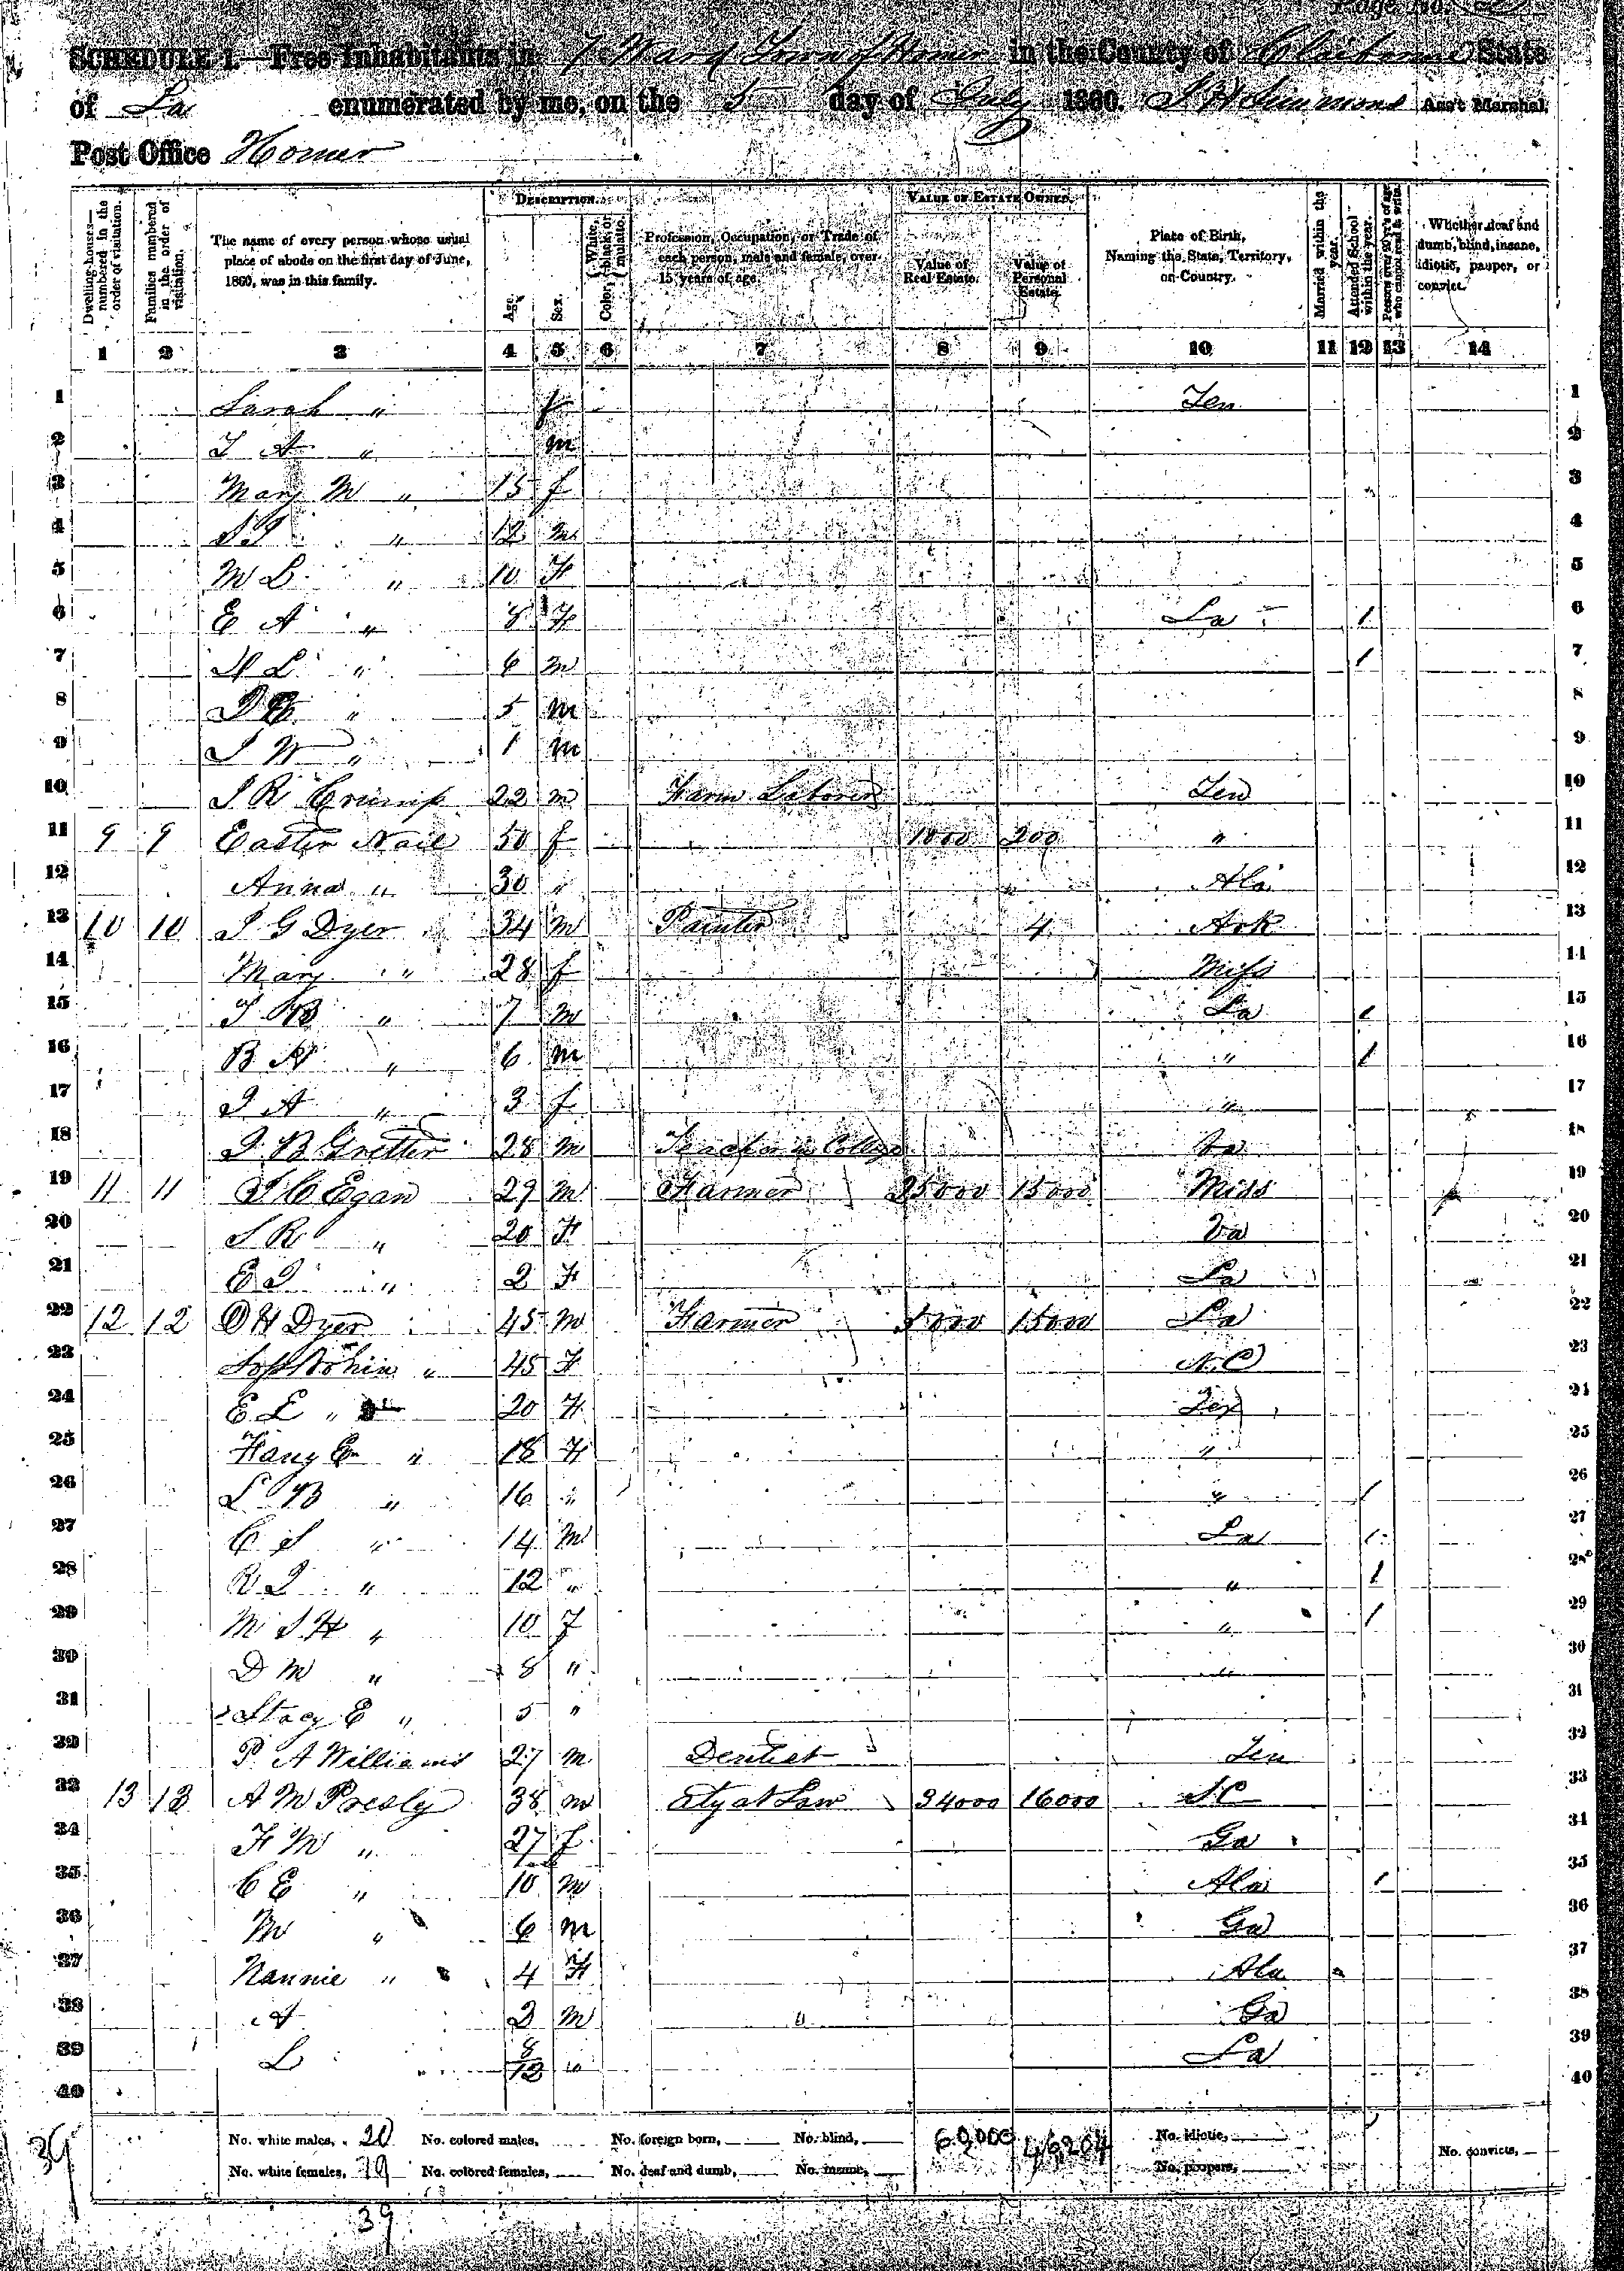 Page No.
SCHEDULE 1.—Free Inhabitants in 7 Ward Town of Homer in the County of Claiborne State
of La enumerated by me, on the 5 day of July 1860. Simmons Ass't Marshal.
Post Office Homer
Dwelling-houses—numbered in the order of visitation.
Families numbered in the order of visitation.
The name of every person whose usual place of abode on the first day of June, 1860, was in this family.
DESCRIPTION.
Age.
Sex.
Color, White, black, or mulatto.
Profession, Occupation, or Trade of each person, male and female, over 15 years of age.
VALUE OF ESTATE OWNED.
Value of Real Estate.
Value of Personal Estate.
Place of Birth, Naming the State, Territory, or Country.
Married within the year.
Attended School within the year.
Persons over 20 y'rs of age who cannot read & write.
Whether deaf and dumb, blind, insane, idiotic, pauper, or convict.
1 2 3 4 5 6 7 8 9 10 11 12 13 14
1 Sarah " f Ten 1
2 " m 2
3 Mary M " 15 f 3
4 " 12 m 4
5 M L " 10 F 5
6 E A " 8 F La 1 6
7 L " 6 m 1 7
8 " 5 m 8
9 W " 1 m 9
10 R Crump 22 m Farm Laborer Ten 10
11 9 9 Easter Nail 50 f 1000 200 " 11
12 Anna " 30 " Ala 12
13 10 10 G Dyer 34 m Painter 4 Ark 13
14 Mary " 28 f Miss 14
15 B " 7 m La 1 15
16 B " 6 m " 1 16
17 A " 3 f " 17
18 B Gretter 28 m Teacher in College 18
19 11 11 C Egan 29 m Farmer 25000 15000 Miss 19
20 R " 20 F Va 20
21 E " 2 F La 21
22 12 12 O H Dyer 45 m Farmer 15000 La 22
23 " 45 F N.C 23
24 E L " 20 F 24
25 E " 18 F " 25
26 L B " 16 " " 1 26
27 C S " 14 M La 1 27
28 R " 12 " " 1 28
29 M S H " 10 f " 1 29
30 D M " 8 " " 30
31 Stacy E " 5 " 31
32 P A Williams 27 m Dentist Ten 32
33 13 13 A M Presly 38 m Aty at Law 34000 16000 S C 33
34 F M " 27 f Ga 34
35 C E " 10 m Ala 1 35
36 M " 6 m Ga 36
37 Nannie " 4 F Ala 37
38 A 2 m Ga 38
39 L 8/12 " La 39
40 40
39
No. white males, 20 No. colored males, No. foreign born, No. blind, 60,000 46204 No. idiotic,
No. white females, 19 No. colored females, No. deaf and dumb, No. insane, No. paupers, No. convicts,
39